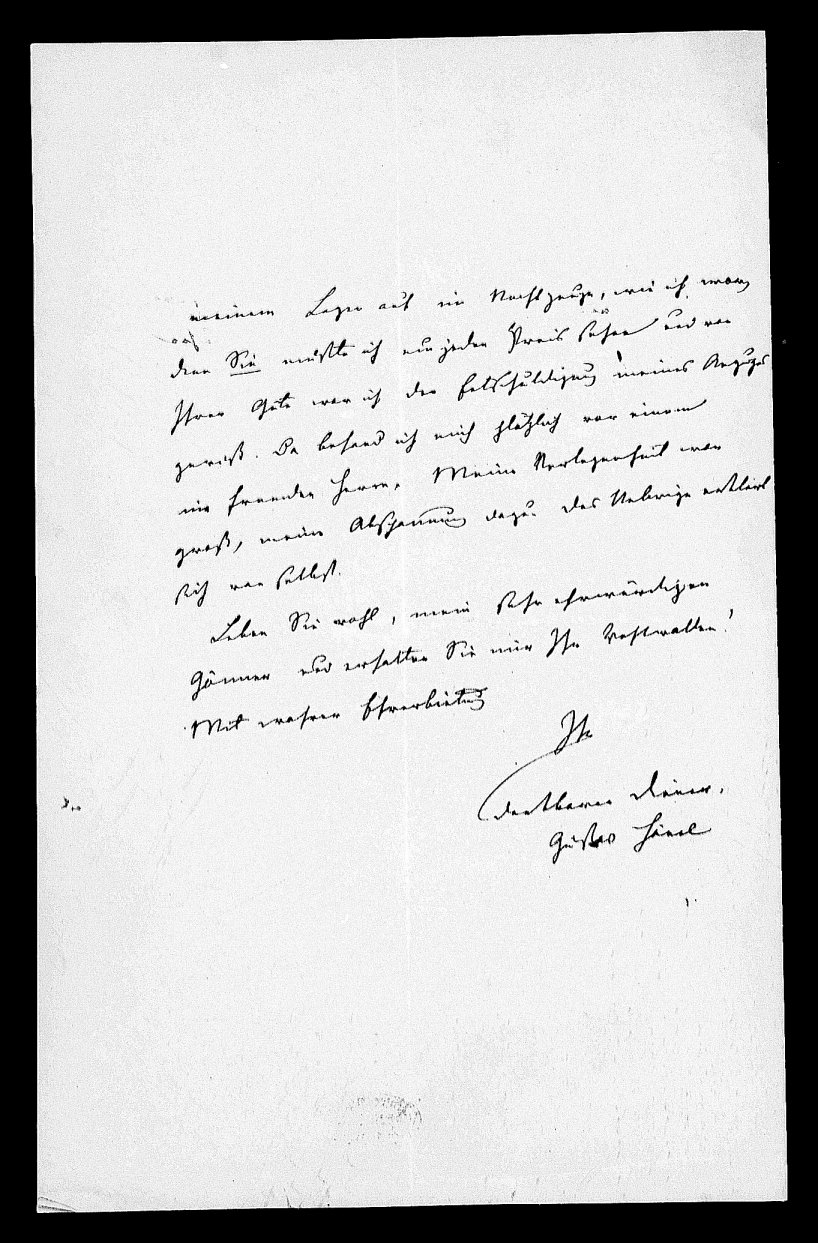 meinem Lager auf im Nachtzeuge, wie ich war,
denn Sie mußte ich um jeden Preis sehen und von
Ihrer Güte war ich der Entschuldigung meines Anzuges
gewiß. Da befand ich mich plötzlich vor einem
mir fremden Herrn. Meine Verlegenheit war
groß, meine Abspannung dazu. Das Uebrige erklärt
sich von selbst.
Leben Sie wohl, mein sehr ehrwürdigen
Gönner und erhalten Sie mir Ihr Wohlwollen!
Mit wahrer Ehrerbietung
Ihr
dankbarer Diener,
Gustav Hänel